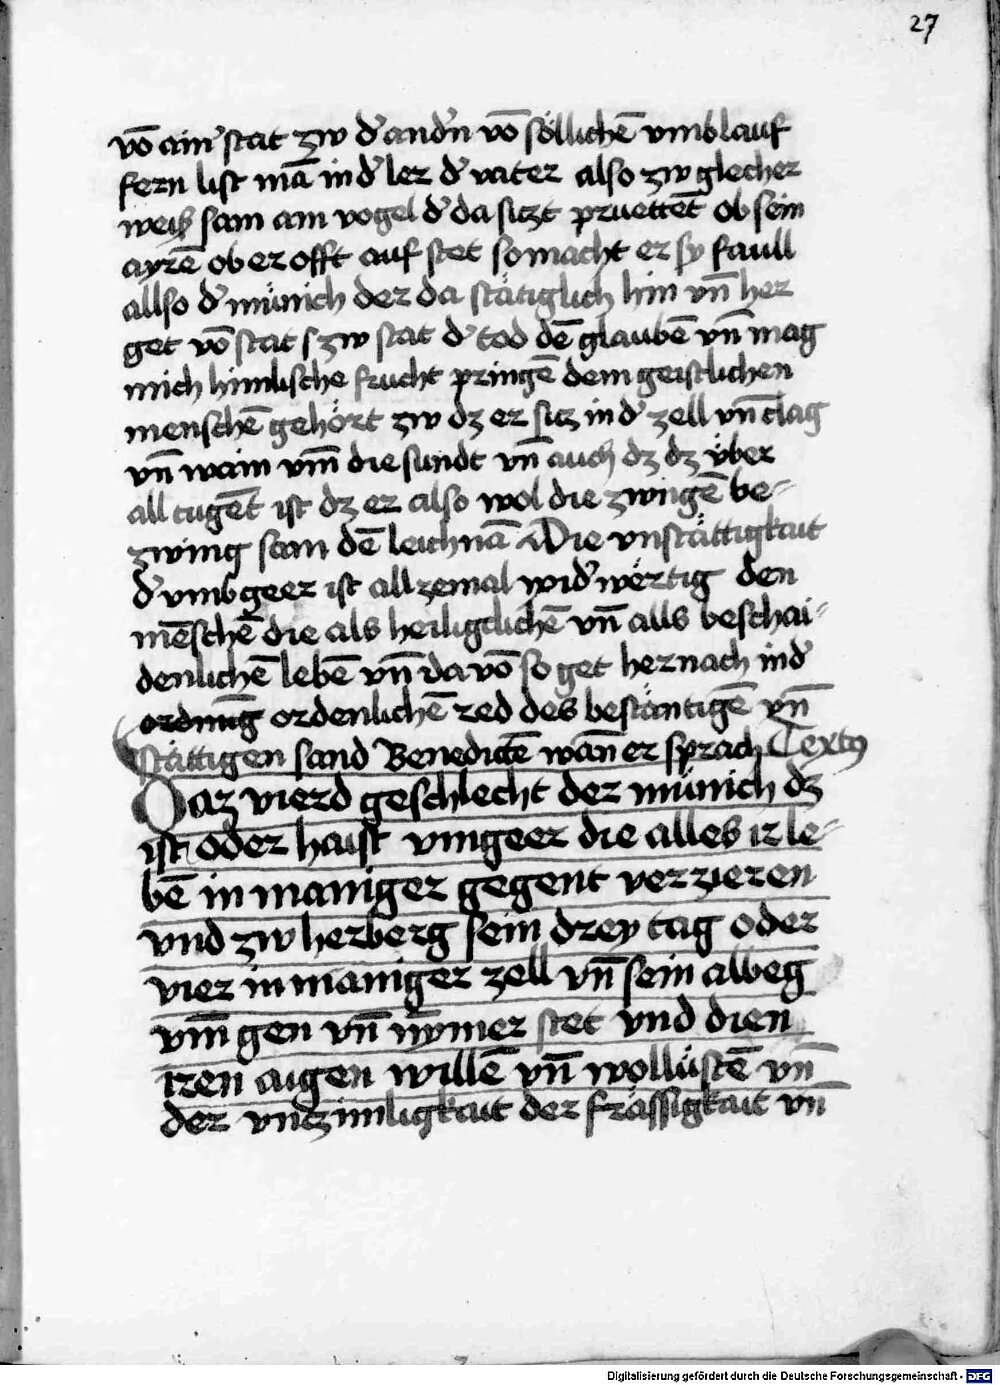 27
vō ain͛ stat zw d͛ and͛n vō söllichē vmblauf
fern list mā in d͛ ler d͛ väter also zw glecher
weiß sam ain vogel d͛ da siczt pruettēt ob sein
ayrē ob er offt auf stet so macht er sy faull
allso d͛ münich der da stätiglich hin vn̄ her
get vō stat zw stat d͛ tod dē glaubē vn̄ mag
nich himlische frucht pringē dem geistlichen
menschē gehört zw dz er sicz in d͛ zell vn̄ clag
vn̄ wain vm̄ die sundt vn̄ auch dz dz über
all tugēt ist dz er also wol die zwingē be-
zwing sam dē leichnā Die vnstättigkait
d͛ vmbgeer ist allzemal wid͛wërtig den
mēschē die als heiligclichē vn̄ alls beschai-
denlichē lebē vn̄ da vō so get hernach in d͛
ordnūg ordenlichē red des beständigē vn̄
stättigen sand Benedictē wān er sprach Textꝯ
Daz vierd geschlecht der münich dz
ist oder haist vmgeer die alles ir le-
bē in maniger gegent verzieren
vnd zw herberg sein drey tag oder
vier in maniger zell vn̄ sein albeg
vm̄ gen vn̄ nȳmer stet vnd dien
iren aigen willē vn̄ wollüstē vn̄
der vnczimligkait der frässigkait vn̄
Digitalisierung gefördert durch die Deutsche Forschungsgemeinschaft - DFG